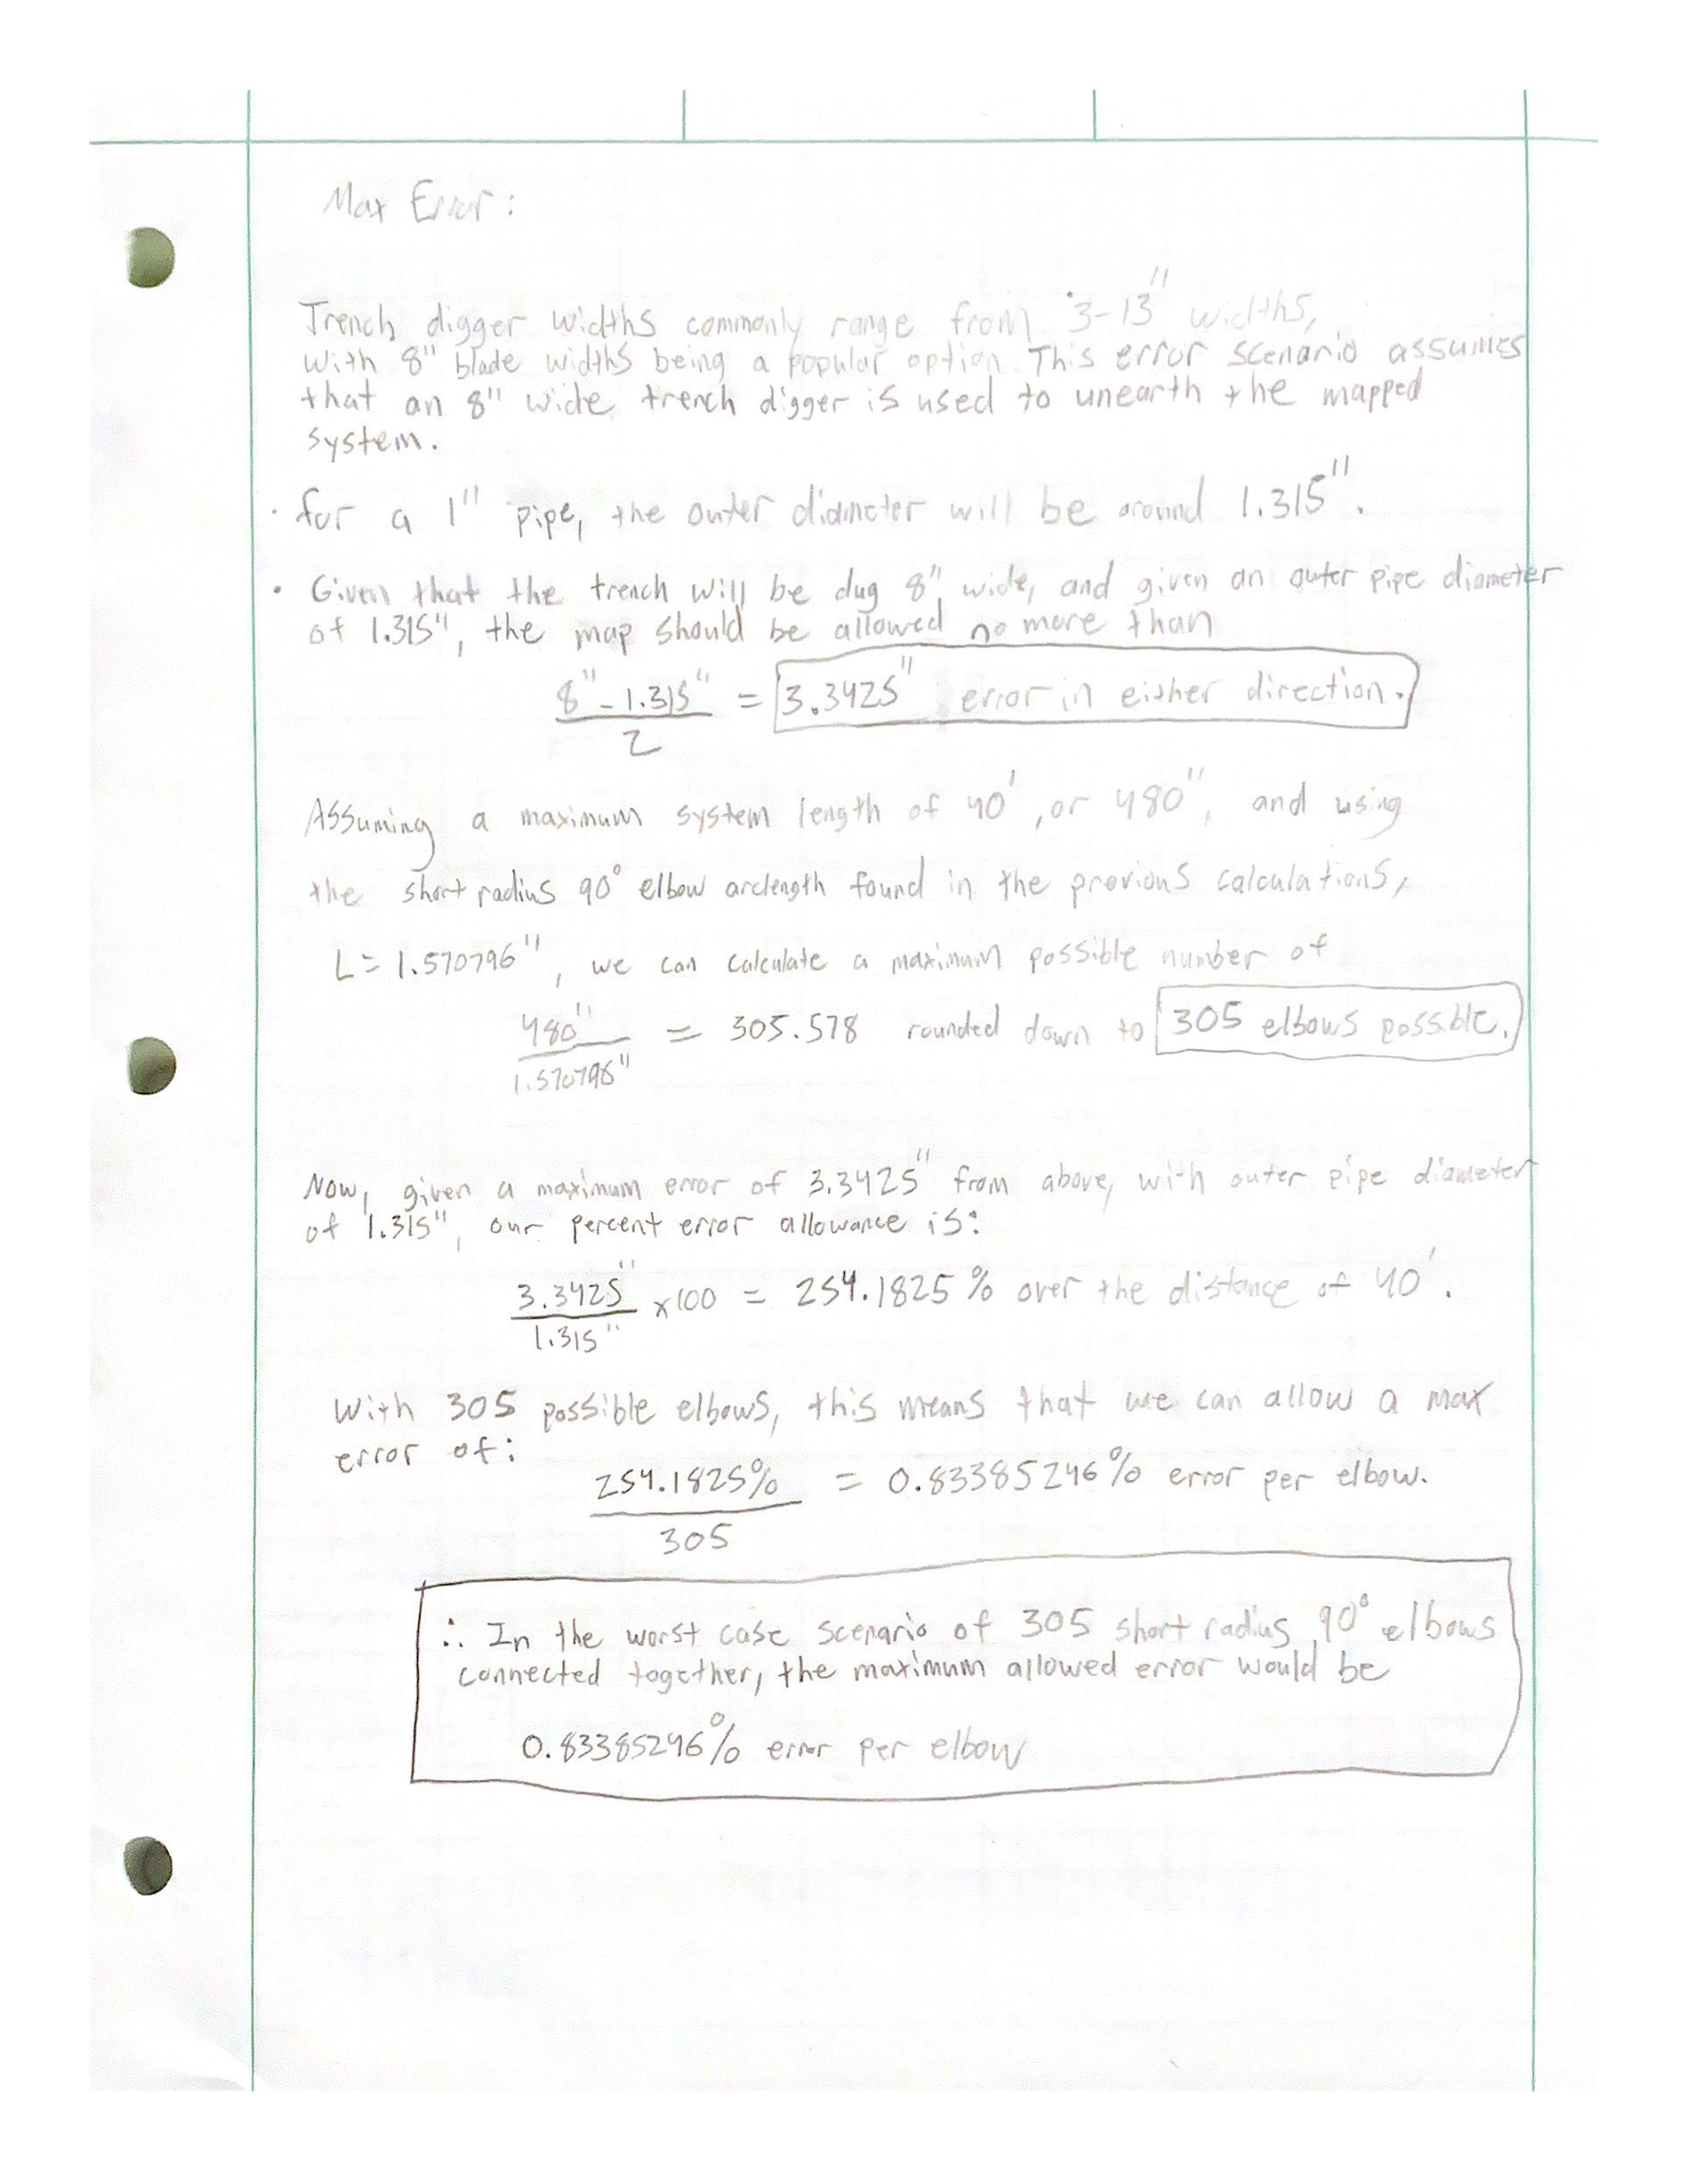 Max Error:
Trench digger widths commonly range from 3-13" widths,
with 8" blade widths being a popular option. This error scenario assumes
that an 8" wide trench digger is used to unearth the mapped
system.
· for a 1" pipe, the outer diameter will be around 1.315".
· Given that the trench will be dug 8" wide, and given an outer pipe diameter
of 1.315", the map should be allowed no more than
8" - 1.315" / 2 = 3.3425" error in either direction.
Assuming a maximum system length of 40', or 480", and using
the short radius 90° elbow arclength found in the previous calculations,
L = 1.570796", we can calculate a maximum possible number of
480" / 1.570796" = 305.578 rounded down to 305 elbows possible.
Now, given a maximum error of 3.3425" from above, with outer pipe diameter
of 1.315", our percent error allowance is:
3.3425" / 1.315" x100 = 254.1825% over the distance of 40'.
With 305 possible elbows, this means that we can allow a max
error of:
254.1825% / 305 = 0.83385246% error per elbow.
∴ In the worst case scenario of 305 short radius 90° elbows
connected together, the maximum allowed error would be
0.83385246% error per elbow